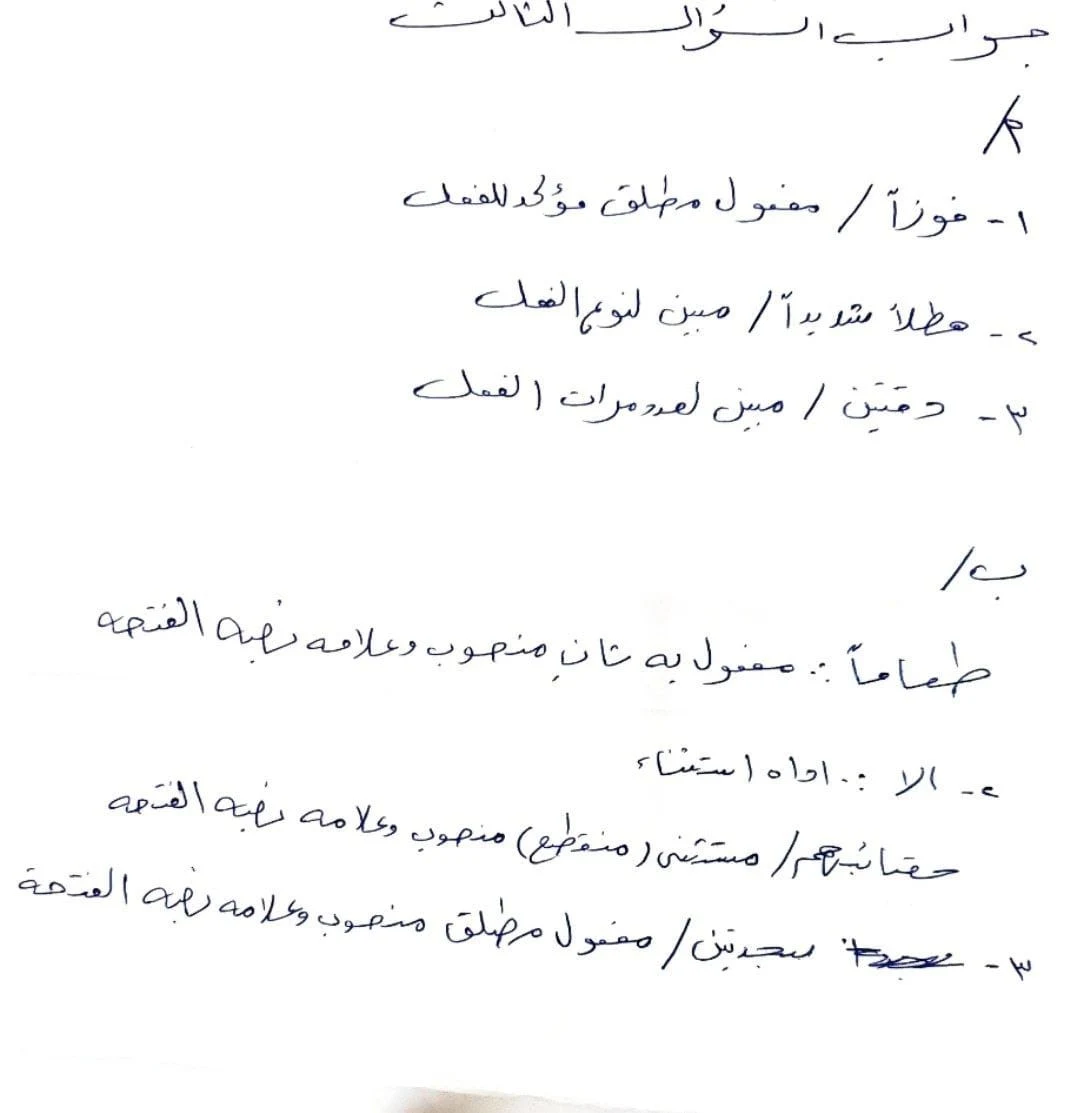 جواب السؤال الثالث
أ/
١- فوزاً / مفعول مطلق مؤكد للفعل
٢- هطلاً شديداً / مبين لنوع الفعل
٣- دقتين / مبين لعدد مرات الفعل
ب/
طعاماً :. مفعول به ثانٍ منصوب وعلامه نصبه الفتحه
٢- الا :. اداه استثناء
حقائبهم / مستثنى (منقطع) منصوب وعلامه نصبه الفتحه
٣- سجدتين / مفعول مطلق منصوب وعلامه نصبه الفتحة